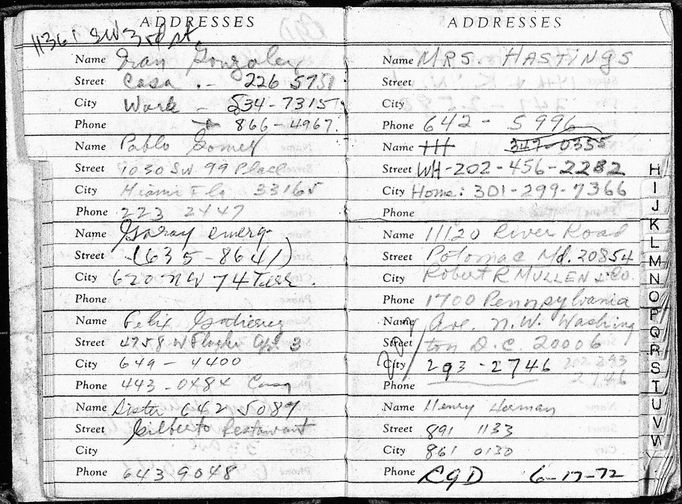 ADDRESSES
11361 SW 3rd st.
Name Fran Gonzalez
Street Casa - 226 5751
City Work - 534-7315
Phone 866-4967
Name Pablo Gomez
Street 1030 SW 99 Place
City Miami Fla 33165
Phone 223 2447
Name Garay emerg-
Street (635-8641)
City 620 NW 74 Terr.
Phone
Name Felix Gutierrez
Street 4758 W Flagler 3
City 649-4400
Phone 443-0484 Casa
Name Sister 642 5089
Street Gilberto Restaurant
City
Phone 643 9048
ADDRESSES
Name MRS. HASTINGS
Street
City
Phone 642-5996
Name HH 347-0355
Street WH-202-456-2282
City Home: 301-299-7366
Phone
Name 11120 River Road
Street Potomac Md. 20854
City Robert R MULLEN & Co
Phone 1700 Pennsylvania
Name Ave. N.W. Washing
Street ton D.C. 20006
City 293-2746
Phone
Name Henry Herman
Street 891 1133
City 861 0130
Phone RGD 6-17-72
H
I
J
K
L
M
N
O
P
Q
R
S
T
U
V
W